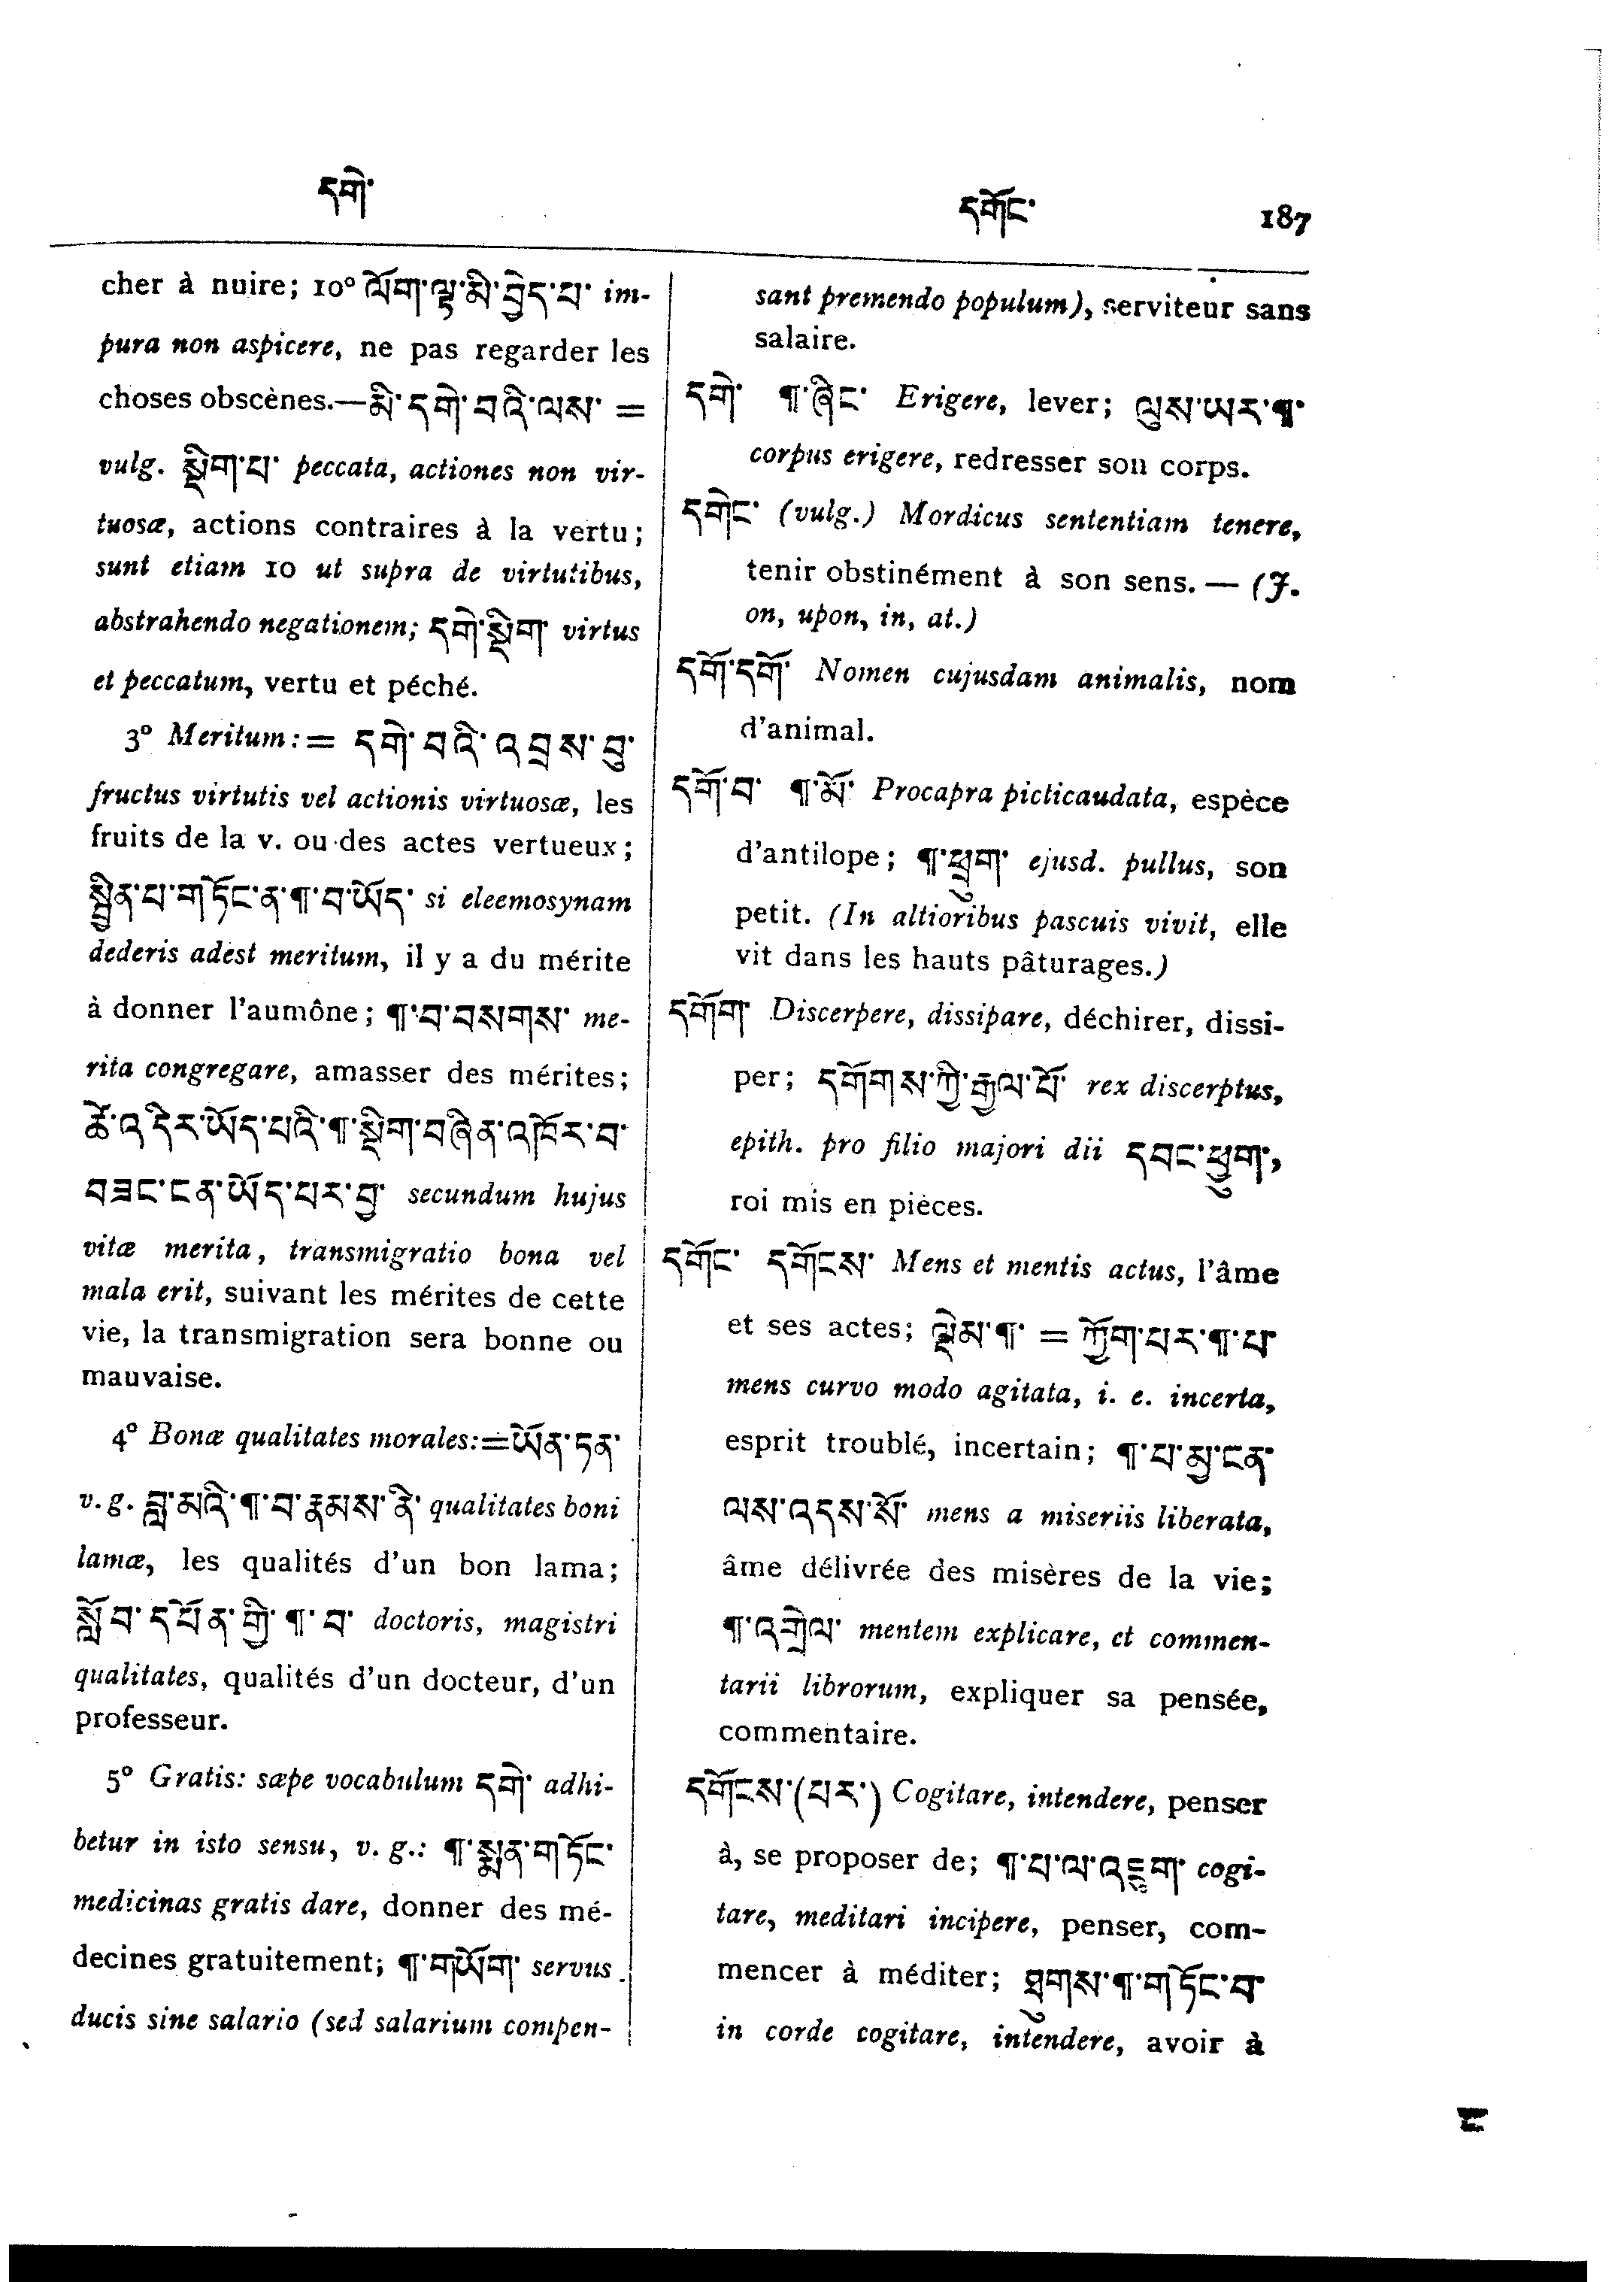 དགེ་
དགོང་ 187
cher à nuire; 10° ལོག་ལྟ་མི་བྱེད་པ་ im-
pura non aspicere, ne pas regarder les
choses obscènes.—མི་དགེ་བའི་ལས་ =
vulg. སྡིག་པ་ peccata, actiones non vir-
tuosæ, actions contraires à la vertu;
sunt etiam 10 ut supra de virtutibus,
abstrahendo negationem; དགེ་སྡིག་ virtus
et peccatum, vertu et péché.
3° Meritum: = དགེ་བའི་འབྲས་བུ་
fructus virtutis vel actionis virtuosæ, les
fruits de la v. ou des actes vertueux;
སྦྱིན་པ་གཏོང་ན་¶་བ་ཡོད་ si eleemosynam
dederis adest meritum, il y a du mérite
à donner l'aumône; ¶་བ་བསགས་ me-
rita congregare, amasser des mérites;
ཚེ་འདིར་ཡོད་པའི་¶་སྡིག་བཞིན་འཁོར་བ་
བཟང་ངན་ཡོད་པར་བྱ་ secundum hujus
vitæ merita, transmigratio bona vel
mala erit, suivant les mérites de cette
vie, la transmigration sera bonne ou
mauvaise.
4° Bonæ qualitates morales:=ཡོན་ཏན་
v. g. བླ་མའི་¶་བ་རྣམས་ནི་ qualitates boni
lamæ, les qualités d'un bon lama;
སློབ་དཔོན་གྱི་¶་བ་ doctoris, magistri
qualitates, qualités d'un docteur, d'un
professeur.
5° Gratis: sæpe vocabulum དགེ་ adhi-
betur in isto sensu, v. g.: ¶་སྨན་གཏོང་
medicinas gratis dare, donner des mé-
decines gratuitement; ¶་གཡོག་ servus
ducis sine salario (sed salarium compen-
sant premendo populum), serviteur sans
salaire.
དགེ་ ¶་ཞིང་ Erigere, lever; ལུས་ཡར་¶་
corpus erigere, redresser son corps.
དགེང་ (vulg.) Mordicus sententiam tenere,
tenir obstinément à son sens. — (J.
on, upon, in, at.)
དགོ་དགོ་ Nomen cujusdam animalis, nom
d'animal.
དགོ་བ་ ¶་མོ་ Procapra picticaudata, espèce
d'antilope; ¶་ཕྲུག་ ejusd. pullus, son
petit. (In altioribus pascuis vivit, elle
vit dans les hauts pâturages.)
དགོག་ Discerpere, dissipare, déchirer, dissi-
per; དགོགས་ཀྱི་རྒྱལ་པོ་ rex discerptus,
epith. pro filio majori dii དབང་ཕྱུག་,
roi mis en pièces.
དགོང་ དགོངས་ Mens et mentis actus, l'âme
et ses actes; ལྡེམ་¶་ = ཀྱོག་པར་¶་པ་
mens curvo modo agitata, i. e. incerta,
esprit troublé, incertain; ¶་པ་མྱ་ངན་
ལས་འདས་སོ་ mens a miseriis liberata,
âme délivrée des misères de la vie;
¶་འགྲེལ་ mentem explicare, et commen-
tarii librorum, expliquer sa pensée,
commentaire.
དགོངས་(པར་) Cogitare, intendere, penser
à, se proposer de; ¶་པ་ལ་འཇུག་ cogi-
tare, meditari incipere, penser, com-
mencer à méditer; ཐུགས་¶་གཏོང་བ་
in corde cogitare, intendere, avoir à